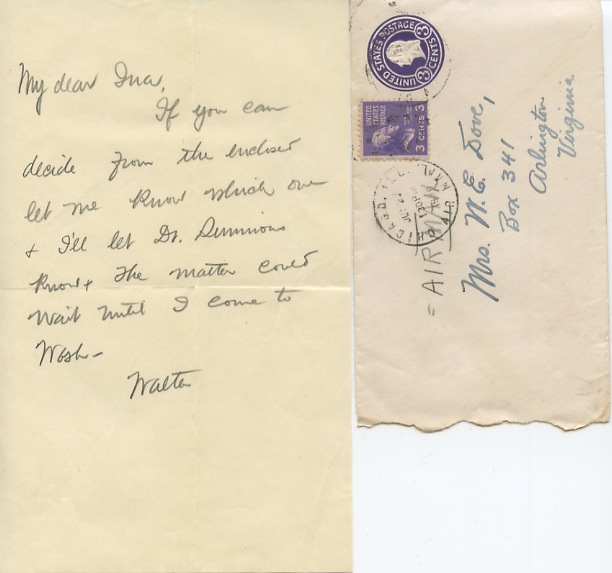 My dear Ina,
If you can
decide from the enclosed
let me know which one
& I'll let Dr. Simmons
know & the matter could
wait until I come to
Wash-
Walter
UNITED STATES POSTAGE
3 CENTS 3
UNITED STATES
POSTAGE
3 CENTS 3
CHICAGO, ILL.
AIR MAIL
= AIR MAIL
Mrs. W. E. Dove,
Box 341
Arlington
Virginia